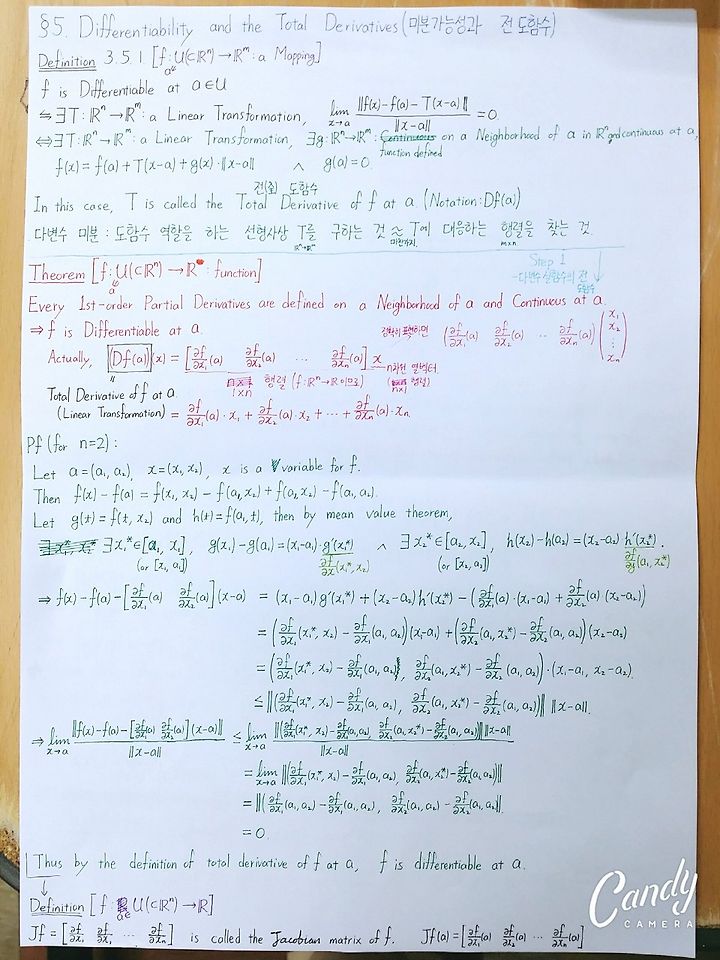 §5. Differentiability and the Total Derivatives (미분가능성과 전 도함수)
Definition 3.5.1 [f: U(⊂ℝⁿ) → ℝᵐ : a Mapping]
a∈
f is Differentiable at a∈U
⇋ ∃T: ℝⁿ→ℝᵐ: a Linear Transformation, lim_{x→a} ‖f(x)-f(a)-T(x-a)‖ / ‖x-a‖ = 0.
⇔ ∃T: ℝⁿ→ℝᵐ: a Linear Transformation, ∃g: ℝⁿ→ℝᵐ: function defined on a Neighborhood of a in ℝⁿ and continuous at a,
f(x) = f(a) + T(x-a) + g(x)·‖x-a‖ ∧ g(a)=0.
전(체) 도함수
In this case, T is called the Total Derivative of f at a (Notation: Df(a))
다변수 미분 : 도함수 역할을 하는 선형사상 T를 구하는 것 ≈ T에 대응하는 행렬을 찾는 것.
ℝⁿ→ℝᵐ 마찬가지. m×n
Step 1
- 다변수 실함수의 전
도함수
Theorem [f: U(⊂ℝⁿ) → ℝ : function]
a∈
Every 1st-order Partial Derivatives are defined on a Neighborhood of a and Continuous at a.
⇒ f is Differentiable at a.
정확히 표현하면 (∂f/∂x₁(a) ∂f/∂x₂(a) ⋯ ∂f/∂xₙ(a)) (x₁ x₂ ⋮ xₙ)
Actually, (Df(a))(x) = [∂f/∂x₁(a) ∂f/∂x₂(a) ⋯ ∂f/∂xₙ(a)] x n차원 열벡터
1×n 행렬 (f: ℝⁿ→ℝ이므로) (n×1 행렬)
Total Derivative of f at a.
(Linear Transformation) = ∂f/∂x₁(a)·x₁ + ∂f/∂x₂(a)·x₂ + ⋯ + ∂f/∂xₙ(a)·xₙ
Pf (for n=2) :
Let a=(a₁, a₂), x=(x₁, x₂), x is a variable for f.
Then f(x) - f(a) = f(x₁, x₂) - f(a₁, x₂) + f(a₁, x₂) - f(a₁, a₂).
Let g(t) = f(t, x₂) and h(t) = f(a₁, t), then by mean value theorem,
∃x₁*∈[a₁, x₁], g(x₁)-g(a₁) = (x₁-a₁)·g'(x₁*) ∧ ∃x₂*∈[a₂, x₂], h(x₂)-h(a₂) = (x₂-a₂) h'(x₂*).
(or [x₁, a₁]) ∂f/∂x(x₁*, x₂) (or [x₂, a₂]) ∂f/∂y(a₁, x₂*)
⇒ f(x)-f(a)-[∂f/∂x₁(a) ∂f/∂x₂(a)](x-a) = (x₁-a₁)g'(x₁*) + (x₂-a₂)h'(x₂*) - (∂f/∂x₁(a)·(x₁-a₁) + ∂f/∂x₂(a)(x₂-a₂))
= (∂f/∂x₁(x₁*, x₂) - ∂f/∂x₁(a₁, a₂))(x₁-a₁) + (∂f/∂x₂(a₁, x₂*) - ∂f/∂x₂(a₁, a₂))(x₂-a₂)
= (∂f/∂x₁(x₁*, x₂) - ∂f/∂x₁(a₁, a₂), ∂f/∂x₂(a₁, x₂*) - ∂f/∂x₂(a₁, a₂))·(x₁-a₁, x₂-a₂).
≤ ‖(∂f/∂x₁(x₁*, x₂) - ∂f/∂x₁(a₁, a₂), ∂f/∂x₂(a₁, x₂*) - ∂f/∂x₂(a₁, a₂))‖ ‖x-a‖.
⇒ lim_{x→a} ‖f(x)-f(a)-[∂f/∂x₁(a) ∂f/∂x₂(a)](x-a)‖ / ‖x-a‖ ≤ lim_{x→a} ‖(∂f/∂x₁(x₁*, x₂)-∂f/∂x₁(a₁, a₂), ∂f/∂x₂(a₁, x₂*)-∂f/∂x₂(a₁, a₂))‖‖x-a‖ / ‖x-a‖
= lim_{x→a} ‖(∂f/∂x₁(x₁*, x₂)-∂f/∂x₁(a₁, a₂), ∂f/∂x₂(a₁, x₂*)-∂f/∂x₂(a₁, a₂))‖
= ‖(∂f/∂x₁(a₁, a₂)-∂f/∂x₁(a₁, a₂), ∂f/∂x₂(a₁, a₂)-∂f/∂x₂(a₁, a₂)‖.
= 0.
Thus by the definition of total derivative of f at a, f is differentiable at a.
Definition [f: U(⊂ℝⁿ) → ℝ]
a∈
Jf = [∂f/∂x₁ ∂f/∂x₂ ⋯ ∂f/∂xₙ] is called the Jacobian matrix of f. Jf(a) = [∂f/∂x₁(a) ∂f/∂x₂(a) ⋯ ∂f/∂xₙ(a)]
Candy
CAMERA